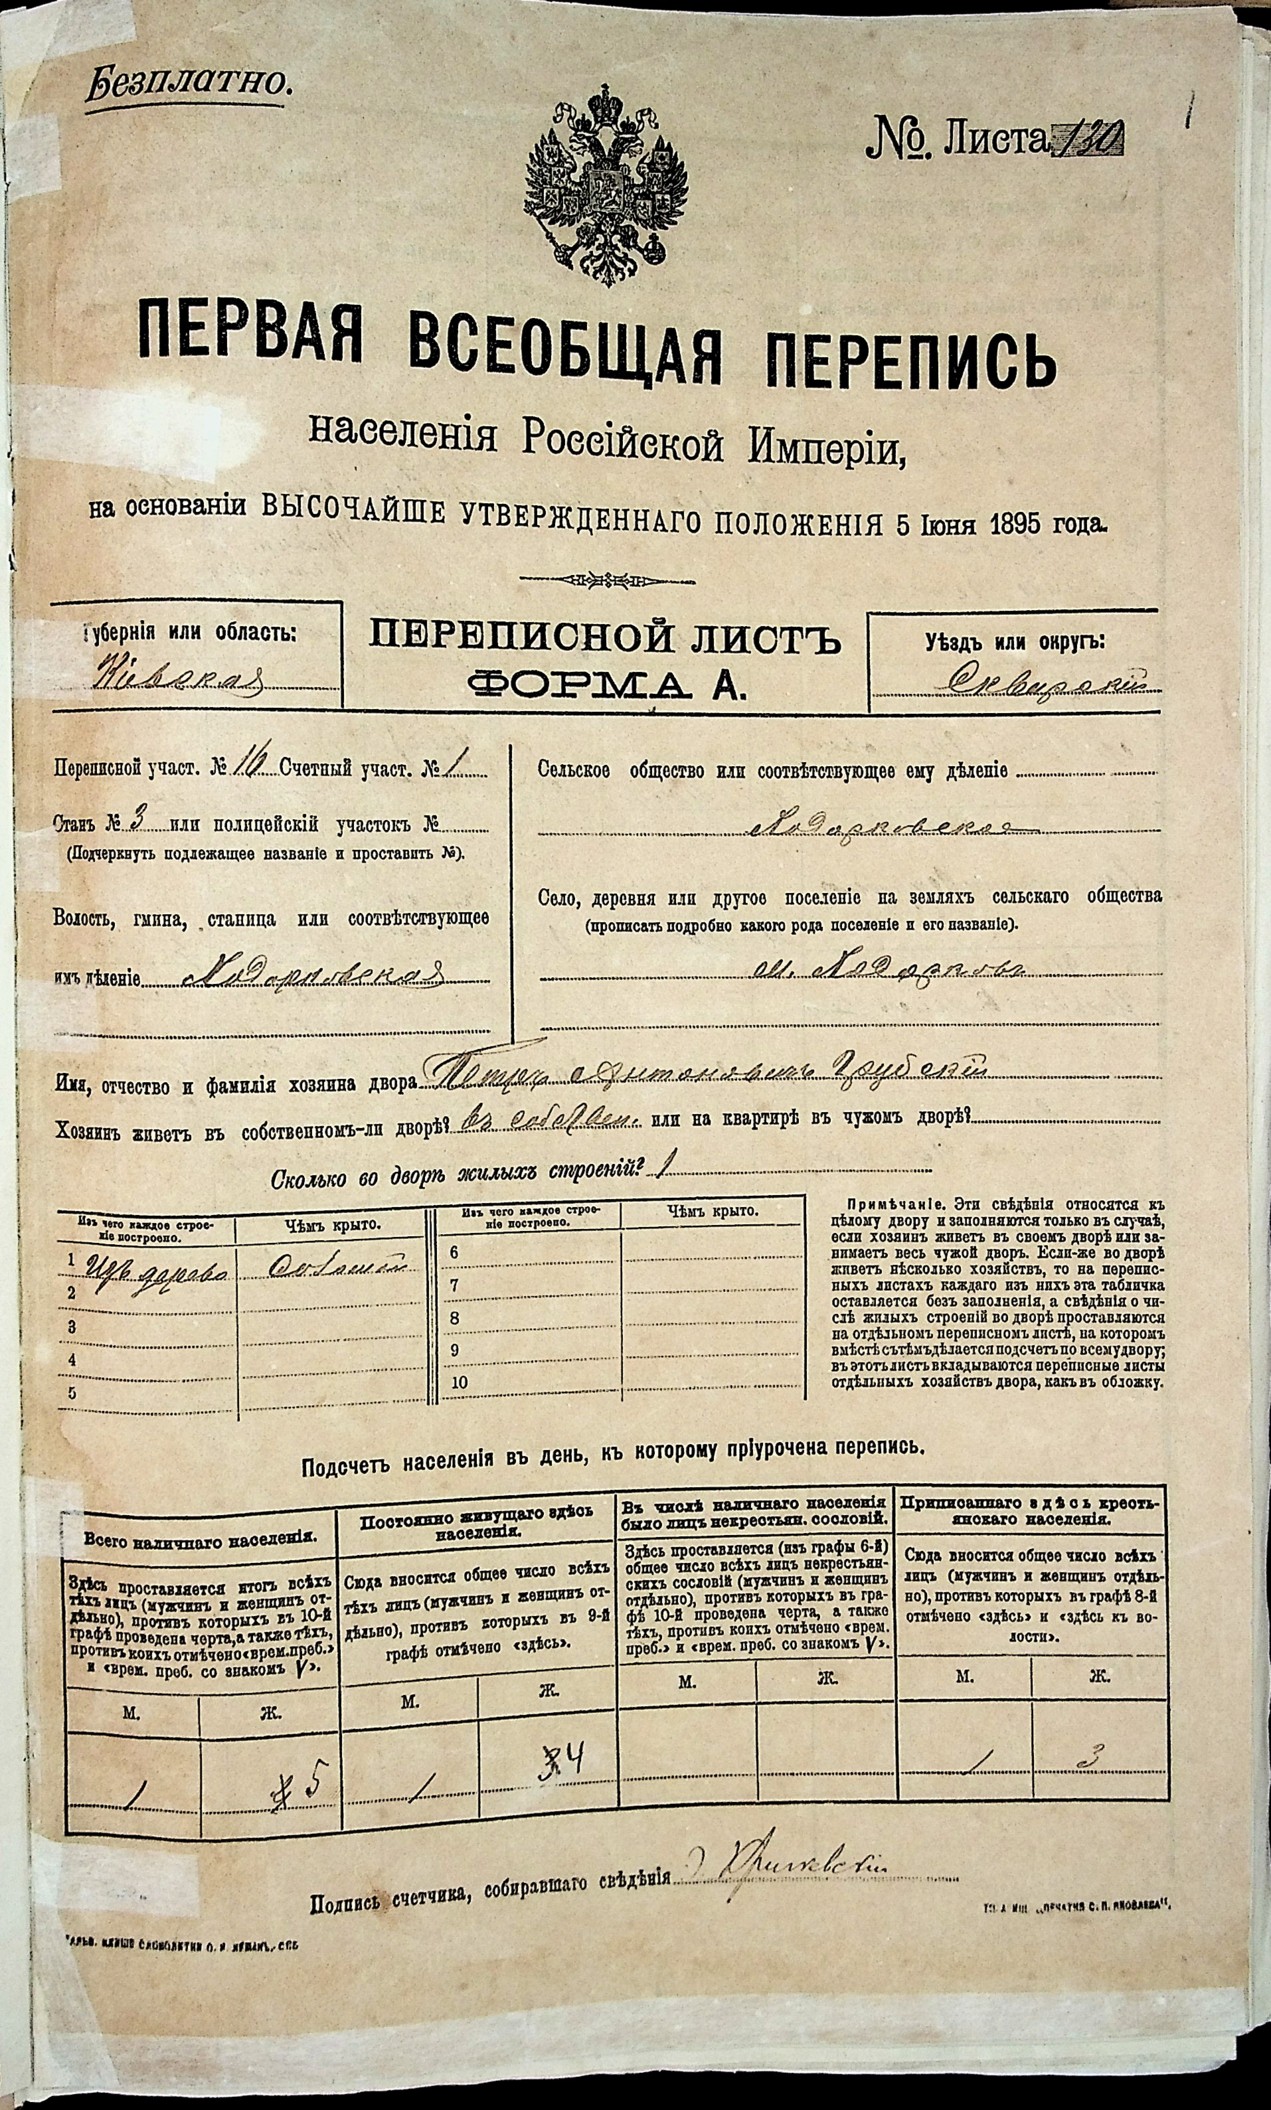 Безплатно.
1
№. Листа 130
ПЕРВАЯ ВСЕОБЩАЯ ПЕРЕПИСЬ
населенія Россійской Имперіи,
на основаніи ВЫСОЧАЙШЕ УТВЕРЖДЕННАГО ПОЛОЖЕНІЯ 5 Іюня 1895 года.
Губернія или область:
Кіевская
ПЕРЕПИСНОЙ ЛИСТЪ
ФОРМА А.
Уѣздъ или округъ:
Сквирскій
Переписной участ. № 16 Счетный участ. № 1
Станъ № 3 или полицейскій участокъ №
(Подчеркнуть подлежащее названіе и проставить №).
Волость, гмина, станица или соотвѣтствующее
имъ дѣленіе Ходорковская
Сельское общество или соотвѣтствующее ему дѣленіе
Ходорковское
Село, деревня или другое поселеніе на земляхъ сельскаго общества
(прописать подробно какого рода поселеніе и его названіе).
м. Ходорковъ
Имя, отчество и фамилія хозяина двора Петръ Антоновичъ Грубскій
Хозяинъ живетъ въ собственномъ-ли дворѣ? въ собствен. или на квартирѣ въ чужомъ дворѣ?
Сколько во дворѣ жилыхъ строеній? 1
Изъ чего каждое строе-
ніе построено.
Чѣмъ крыто.
1 Изъ дерева
2
3
4
5
Изъ чего каждое строе-
ніе построено.
Чѣмъ крыто.
6
7
8
9
10
Примѣчаніе. Эти свѣдѣнія относятся къ
цѣлому двору и заполняются только въ случаѣ,
если хозяин живетъ въ своемъ дворѣ или за-
нимаетъ весь чужой дворъ. Если-же во дворѣ
живетъ нѣсколько хозяйствъ, то на перепис-
ныхъ листахъ каждаго изъ нихъ эта табличка
оставляется безъ заполненія, а свѣдѣнія о чи-
слѣ жилыхъ строеній во дворѣ проставляются
на отдѣльномъ переписномъ листѣ, на которомъ
вмѣстѣ съ тѣмъ дѣлается подсчетъ по всему двору;
въ этотъ листъ вкладываются переписные листы
отдѣльныхъ хозяйствъ двора, какъ въ обложку.
Подсчетъ населенія въ день, къ которому пріурочена перепись.
Всего наличнаго населенія.
Здѣсь проставляется итогъ всѣхъ
тѣхъ лицъ (мужчинъ и женщинъ от-
дѣльно), противъ которыхъ въ 10-й
графѣ проведена черта, а также тѣхъ,
противъ коихъ отмѣчено «врем. преб.»
и «врем. преб. со знакомъ V».
М. Ж.
1 5
Постоянно живущаго здѣсь
населенія.
Сюда вносится общее число всѣхъ
тѣхъ лицъ (мужчинъ и женщинъ от-
дѣльно), противъ которыхъ въ 9-й
графѣ отмѣчено «здѣсь».
М. Ж.
1 3 4
Въ числѣ наличнаго населенія
было лицъ некрестьян. сословій.
Здѣсь проставляется (изъ графы 6-й)
общее число всѣхъ лицъ некрестьян-
скихъ сословій (мужчинъ и женщинъ
отдѣльно), противъ которыхъ въ гра-
фѣ 10-й проведена черта, а также
тѣхъ, противъ коихъ отмѣчено «врем.
преб.» и «врем. преб. со знакомъ V».
М. Ж.
Приписаннаго здѣсь кресть-
янскаго населенія.
Сюда вносится общее число всѣхъ
лицъ (мужчинъ и женщинъ отдѣль-
но), противъ которыхъ въ графѣ 8-й
отмѣчено «здѣсь» и «здѣсь къ во-
лости».
М. Ж.
1 3
Подпись счетчика, собиравшаго свѣдѣнія